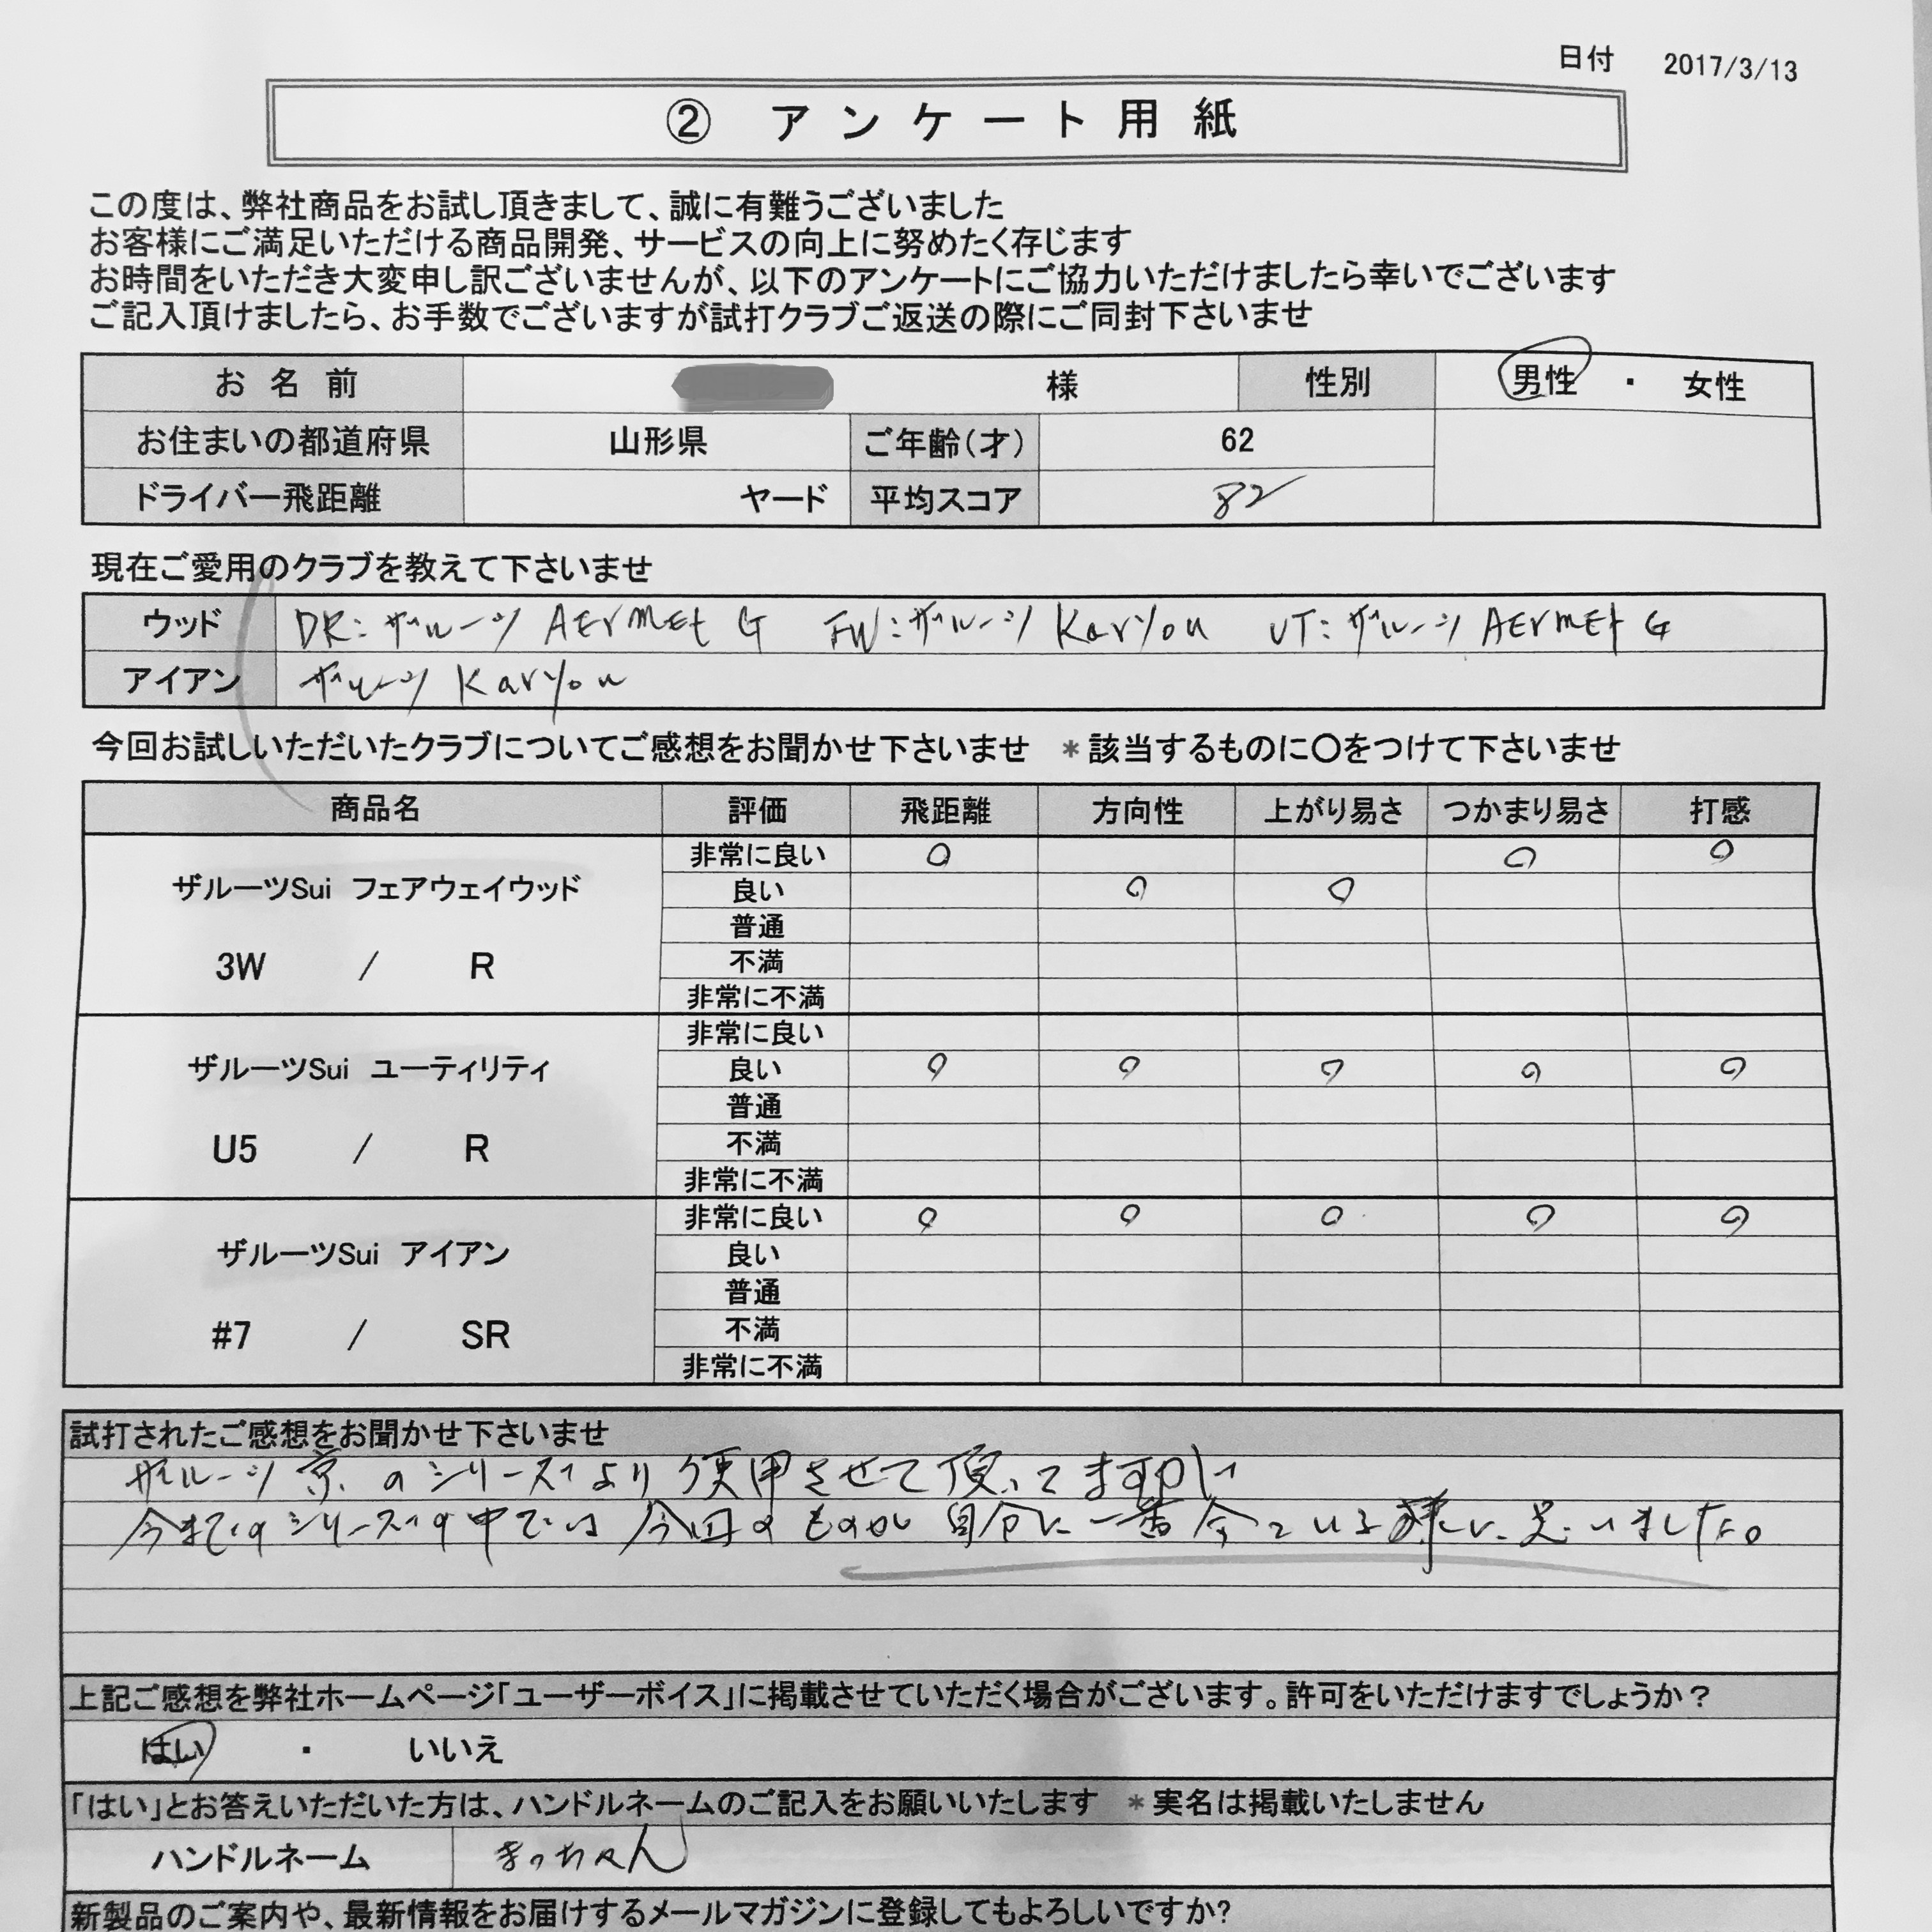 日付 2017/3/13
② アンケート用紙
この度は、弊社商品をお試し頂きまして、誠に有難うございました
お客様にご満足いただける商品開発、サービスの向上に努めたく存じます
お時間をいただき大変申し訳ございませんが、以下のアンケートにご協力いただけましたら幸いでございます
ご記入頂けましたら、お手数でございますが試打クラブご返送の際にご同封下さいませ
お名前 様 性別 男性 ・ 女性
お住まいの都道府県 山形県 ご年齢(才) 62
ドライバー飛距離 ヤード 平均スコア 82
現在ご愛用のクラブを教えて下さいませ
ウッド DR:ザルーツ AERMET G FW:ザルーツ Karyou UT:ザルーツ AERMET G
アイアン ザルーツ Karyou
今回お試しいただいたクラブについてご感想をお聞かせ下さいませ *該当するものに〇をつけて下さいませ
商品名 評価 飛距離 方向性 上がり易さ つかまり易さ 打感
ザルーツSui フェアウェイウッド
3W / R
非常に良い ○ ○ ○
良い ○ ○
普通
不満
非常に不満
ザルーツSui ユーティリティ
U5 / R
非常に良い
良い ○ ○ ○ ○ ○
普通
不満
非常に不満
ザルーツSui アイアン
#7 / SR
非常に良い ○ ○ ○ ○ ○
良い
普通
不満
非常に不満
試打されたご感想をお聞かせ下さいませ
ザルーツ 京 のシリーズより使用させて頂いてますが
今までのシリーズの中では今回のものが自分に一番合っている様に思いました。
上記ご感想を弊社ホームページ「ユーザーボイス」に掲載させていただく場合がございます。許可をいただけますでしょうか?
はい ・ いいえ
「はい」とお答えいただいた方は、ハンドルネームのご記入をお願いいたします *実名は掲載いたしません
ハンドルネーム まっちゃん
新製品のご案内や、最新情報をお届けするメールマガジンに登録してもよろしいですか?